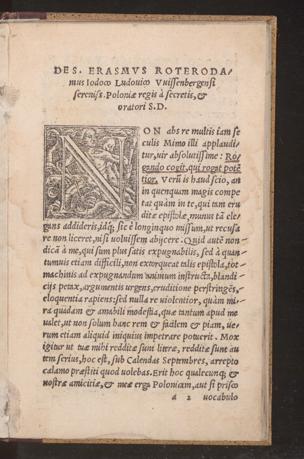 DES. ERASMVS ROTERODA-
mus Iodoco Ludouico Vuissenbergensi
sereniss. Poloniæ regis à secretis, &
oratori S.D.
NON abs re multis iam se
culis Mimo illi applaudi
tur, uir absolutissime: Ro
gando cogit, qui rogat potē
tior. Verū is haud scio, an
in quenquam magis compe
tat quàm in te, qui tam eru
dita epistola, munus tā ele-
gans addideris, idq; sic è longinquo missum, ut recusa
re non liceret, nisi uoluissem abijcere. Quid autē non
dicā à me, qui sum plus satis expugnabilis, sed à quan
tumuis etiam difficili, non extorqueat talis epistola, tot
machinis ad expugnandum animum instructa, blandi-
cijs petax, argumentis urgens, eruditione perstringēs,
eloquentia rapiens: sed nulla re uiolentior, quàm mi-
ra quadam & amabili modestia, quæ tantum apud me
ualet, ut non solum hanc rem & facilem & piam, ue-
rum etiam aliquid iniquius impetrare potuerit. Mox
igitur ut tuæ mihi redditæ sunt literæ, redditæ sunt au
tem serius, hoc est, sub Calendas Septembres, arrepto
calamo præstiti quod uolebas. Erit hoc qualecunq; &
nostræ amicitiæ, & meæ erga Poloniam, aut si prisco
a 2 uocabulo